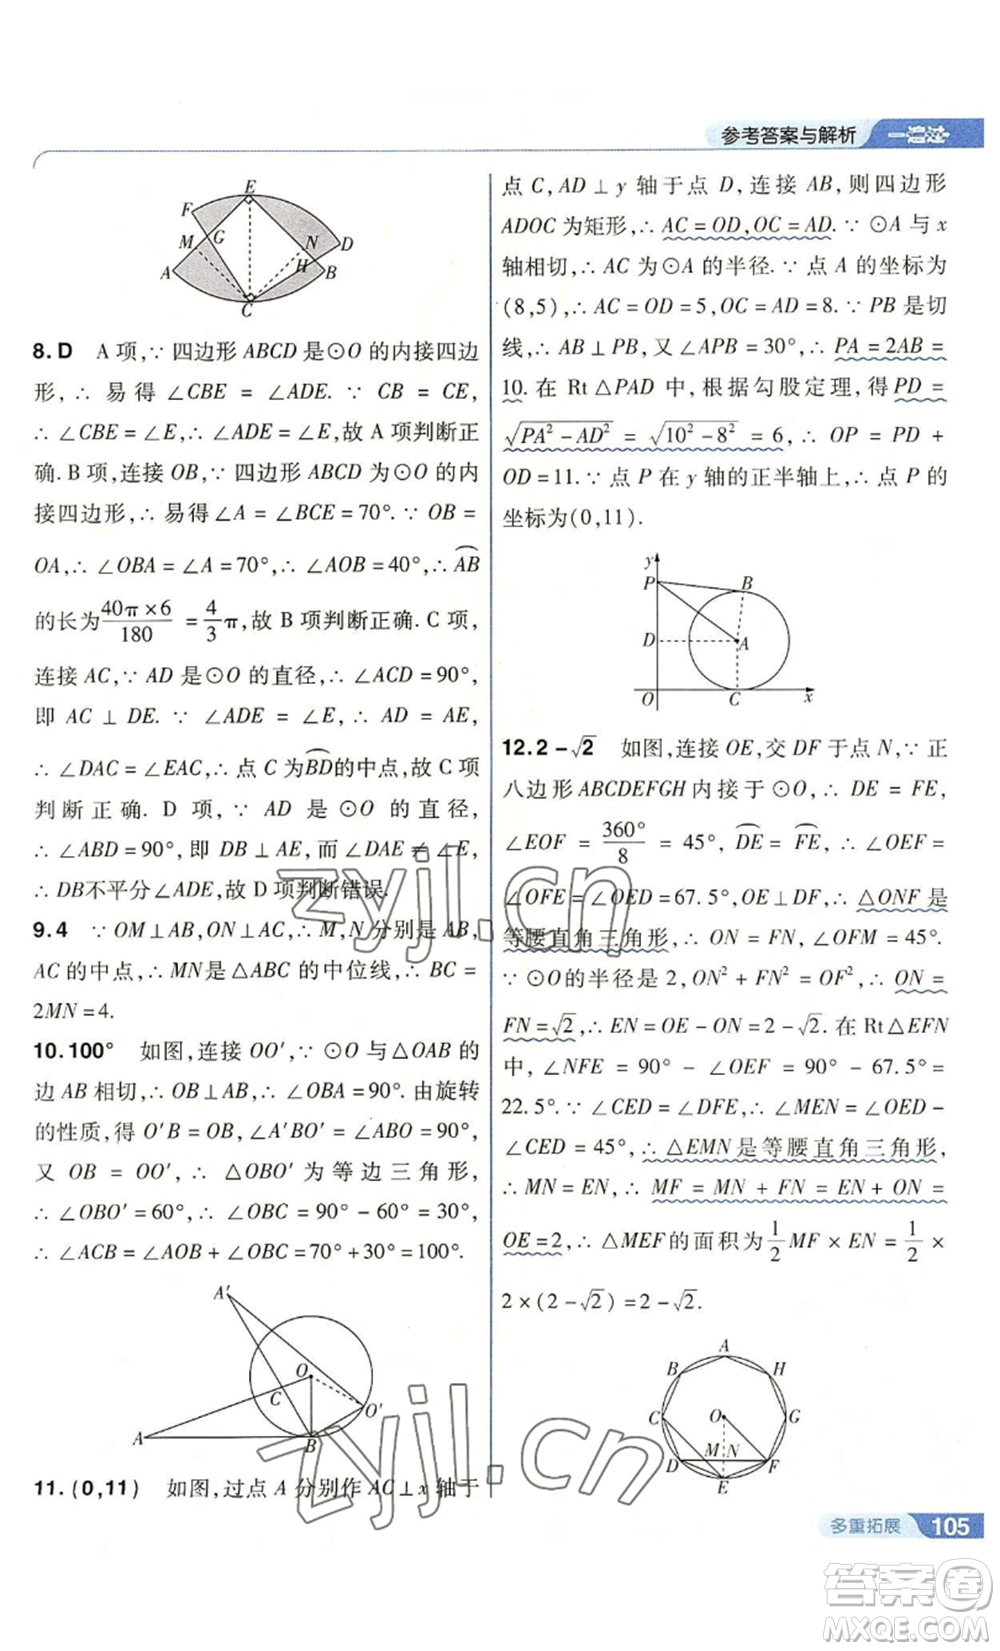 参考答案与解析
一遍过
E
F
M
G
N
D
A
H
B
C
8.D　A 项,∵ 四边形 ABCD 是⊙O 的内接四边
形,∴ 易得 ∠CBE = ∠ADE. ∵ CB = CE,
∴ ∠CBE = ∠E,∴ ∠ADE = ∠E,故 A 项判断正
确. B 项,连接 OB,∵ 四边形 ABCD 为⊙O 的内
接四边形,∴ 易得∠A = ∠BCE = 70°. ∵ OB =
OA,∴ ∠OBA = ∠A = 70°,∴ ∠AOB = 40°,∴ \overset{\frown}{AB}
的长为\frac{40π×6}{180} = \frac{4}{3}π,故 B 项判断正确. C 项,
连接 AC,∵ AD 是⊙O 的直径,∴ ∠ACD = 90°,
即 AC ⊥ DE. ∵ ∠ADE = ∠E,∴ AD = AE,
∴ ∠DAC = ∠EAC,∴ 点 C 为\overset{\frown}{BD}的中点,故 C 项
判断正确. D 项,∵ AD 是 ⊙O 的直径,
∴ ∠ABD = 90°,即 DB ⊥ AE,而 ∠DAE ≠ ∠E,
∴ DB不平分∠ADE,故 D 项判断错误.
9.4　∵ OM⊥AB,ON⊥AC,∴ M,N 分别是 AB,
AC 的中点,∴ MN是△ABC 的中位线,∴ BC =
2MN = 4.
10.100°　如图,连接 OO′,∵ ⊙O 与△OAB 的
边 AB 相切,∴ OB⊥AB,∴ ∠OBA = 90°. 由旋转
的性质,得 O′B = OB,∠A′BO′ = ∠ABO = 90°,
又 OB = OO′,∴ △OBO′ 为等边三角形,
∴ ∠OBO′ = 60°,∴ ∠OBC = 90° - 60° = 30°,
∴ ∠ACB = ∠AOB + ∠OBC = 70° + 30° = 100°.
A′
O
C
O′
A
B
11.(0,11)　如图,过点 A 分别作 AC⊥x 轴于
点 C,AD ⊥ y 轴于点 D,连接 AB,则四边形
ADOC 为矩形,∴ AC = OD,OC = AD. ∵ ⊙A 与 x
轴相切,∴ AC 为⊙A 的半径. ∵ 点 A 的坐标为
(8,5),∴ AC = OD = 5,OC = AD = 8. ∵ PB 是切
线,∴ AB ⊥ PB,又∠APB = 30°,∴ PA = 2AB =
10. 在 Rt △PAD 中,根据勾股定理,得 PD =
\sqrt{PA²-AD²} = \sqrt{10²-8²} = 6,∴ OP = PD +
OD = 11. ∵ 点 P 在 y 轴的正半轴上,∴ 点 P 的
坐标为(0,11).
y
P
B
D
A
O
C
x
12.2-√2　如图,连接 OE,交 DF 于点 N,∵ 正
八边形 ABCDEFGH 内接于⊙O,∴ DE = FE,
∠EOF = \frac{360°}{8} = 45°,\overset{\frown}{DE} = \overset{\frown}{FE},∴ ∠OEF =
∠OFE = ∠OED = 67.5°,OE⊥DF,∴ △ONF 是
等腰直角三角形,∴ ON = FN,∠OFM = 45°.
∵ ⊙O 的半径是 2,ON² + FN² = OF²,∴ ON =
FN = √2,∴ EN = OE - ON = 2 - √2. 在 Rt△EFN
中,∠NFE = 90° - ∠OEF = 90° - 67.5° =
22.5°. ∵ ∠CED = ∠DFE,∴ ∠MEN = ∠OED -
∠CED = 45°,∴ △EMN 是等腰直角三角形,
∴ MN = EN,∴ MF = MN + FN = EN + ON =
OE = 2,∴ △MEF 的面积为\frac{1}{2}MF × EN = \frac{1}{2} ×
2×(2-√2) = 2-√2.
A
B
H
C
O
G
M
N
D
F
E
多重拓展
105
zyjl.cn
zyjl.cn
答案圈
MXQE.COM